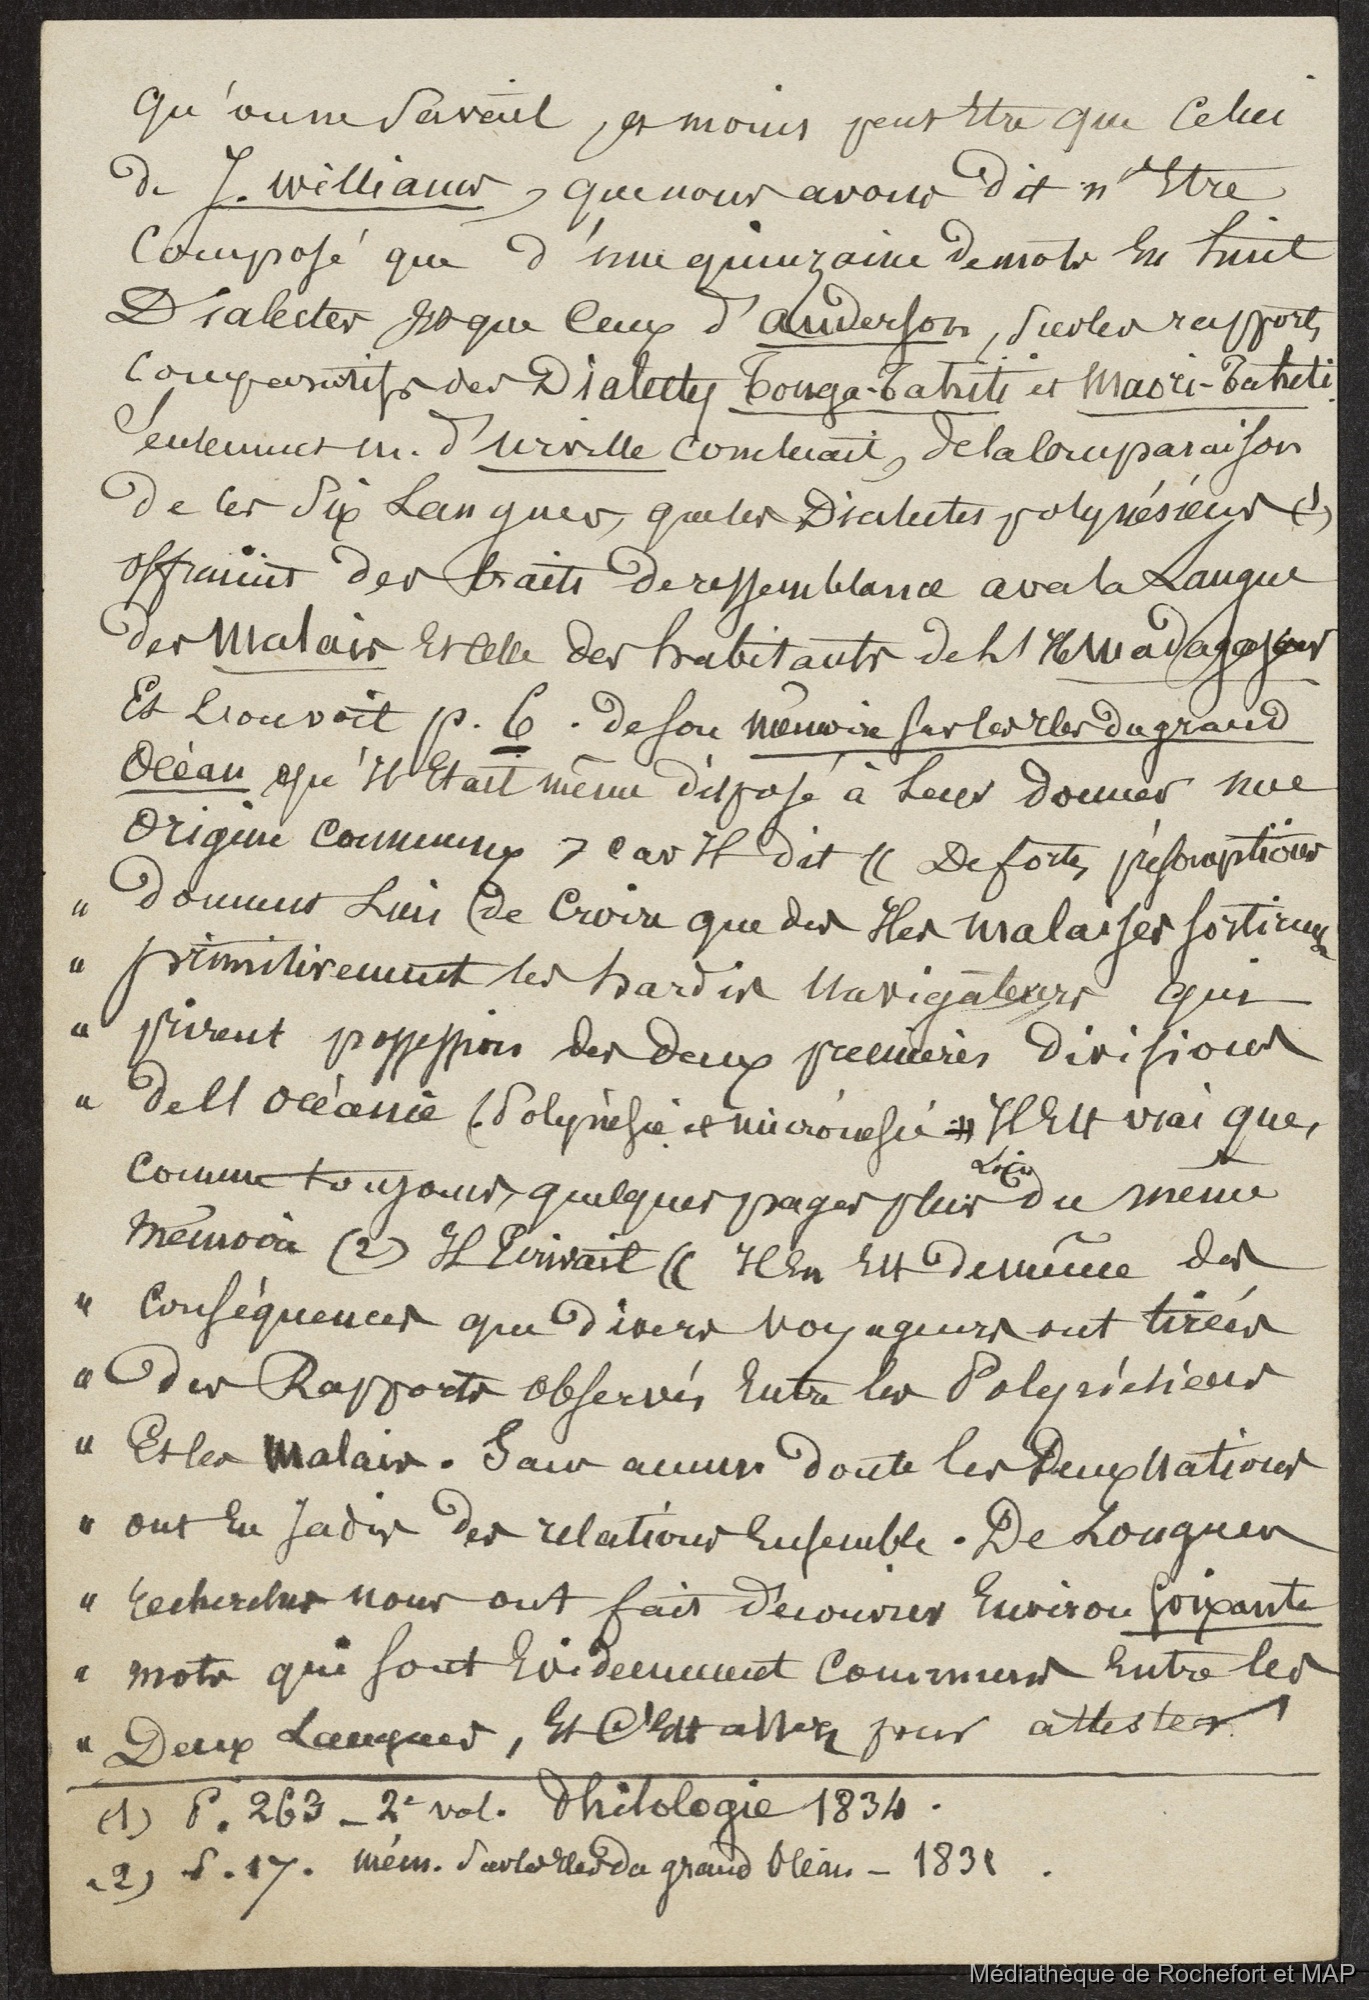 qu'on ne savait, et moins peut être que celui
de J. Williams, que nous avons dit n'être
composé que d'une quinzaine de mots en huit
Dialectes et que ceux d'anderson, sur les rapports
comparatifs des Dialectes Tonga-Tahiti et Maori-Tahiti.
Seulement m. d'urville concluait, de la comparaison
de ces six Langues, que les Dialectes polynésiens (1)
offraient des traits de ressemblance avec la Langue
des Malais et celle des habitants de
Et trouvait p. 6. de son mémoire sur les Iles du grand
Océan qu'Il était même disposé à leur donner une
origine commune, car Il dit (( De fortes présomptions
" donnent lieu de croire que des Iles malaises sortirent
" primitivement les hardis navigateurs qui
" prirent possession des deux premières divisions
" de l'océanie (Polynésie et micronésie )) Il Est vrai que,
comme toujours, quelques pages plus Loin du même
mémoire (2) Il Ecrivait (( Il En Est de même des
" conséquences que divers voyageurs ont tirées
" des Rapports observés Entre les Polynésiens
" Et les Malais. Sans aucun doute les Deux Nations
" ont eu jadis des relations Ensemble. De Longues
" recherches nous ont fait découvrir Environ soixante
" mots qui sont Evidemment communs Entre les
" Deux Langues, Et C'Est assez pour attester
(1) P. 263 - 2e vol. Philologie 1834.
(2) P. 17. mém. sur les Iles du grand Océan - 1831.
Médiathèque de Rochefort et MAP